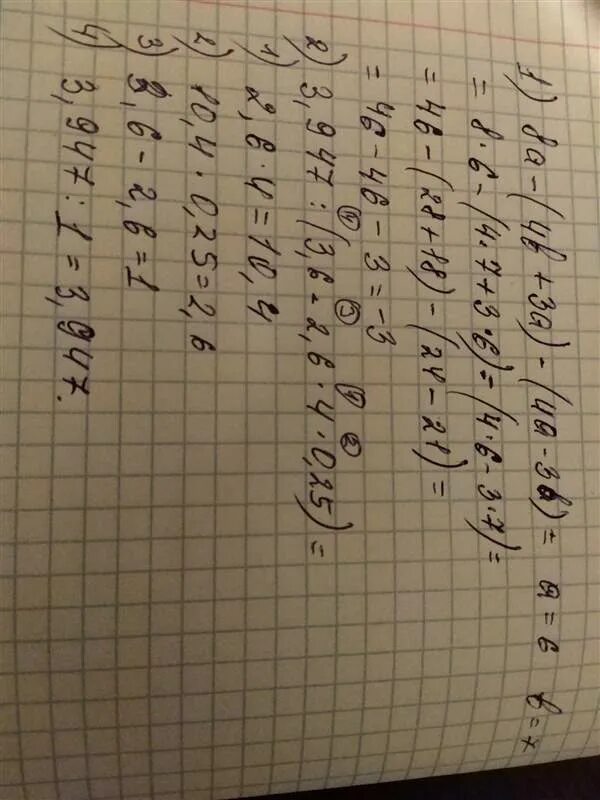 1) 8a-(4b+3a)-(4a-3b)= a=6 b=7
= 8·6-(4·7+3·6)=(4·6-3·7)=
= 48-(28+18)-(24-21)=
= 48-48-3=-3
2) 3,947:(3,6-2,6·4·0,25)=
④ ③ ① ②
1) 2,6·4=10,4
2) 10,4·0,25=2,6
3) 3,6-2,6=1
4) 3,947:1=3,947.